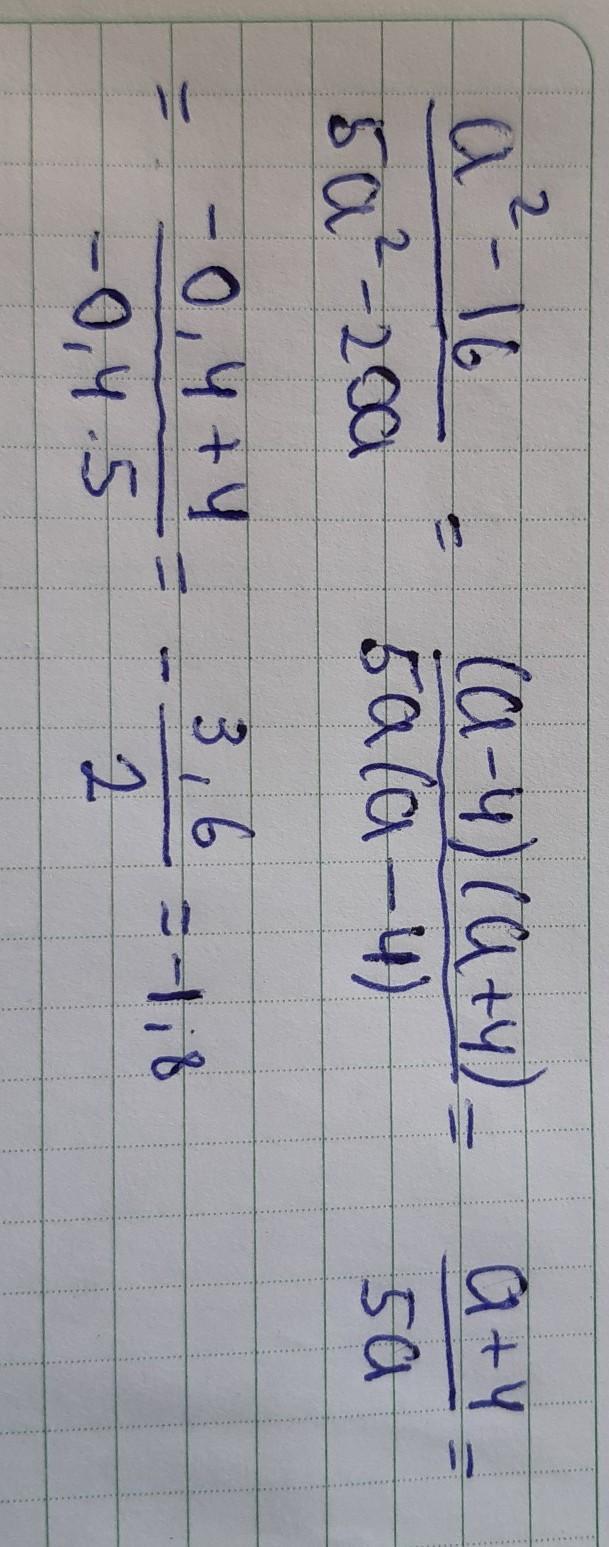 a² - 16 / 5a² - 20a = (a - 4)(a + 4) / 5a(a - 4) = a + 4 / 5a =
= -0,4 + 4 / -0,4 · 5 = - 3,6 / 2 = -1,8